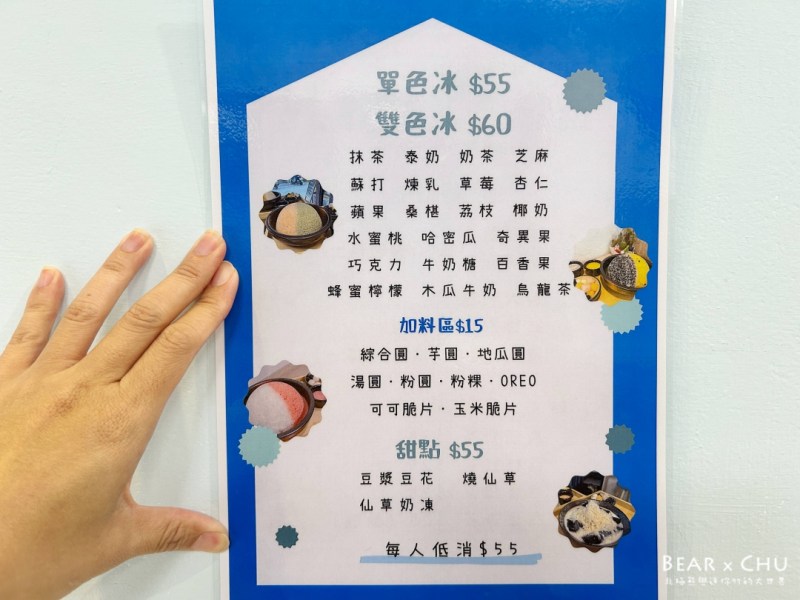 單色冰 $55
雙色冰 $60
抹茶 泰奶 奶茶 芝麻
蘇打 煉乳 草莓 杏仁
蘋果 桑椹 荔枝 椰奶
水蜜桃 哈密瓜 奇異果
巧克力 牛奶糖 百香果
蜂蜜檸檬 木瓜牛奶 烏龍茶
加料區$15
綜合圓·芋圓·地瓜圓
湯圓·粉圓·粉粿·OREO
可可脆片·玉米脆片
甜點 $55
豆漿豆花 燒仙草
仙草奶凍
每人低消$55
BEAR x CHU